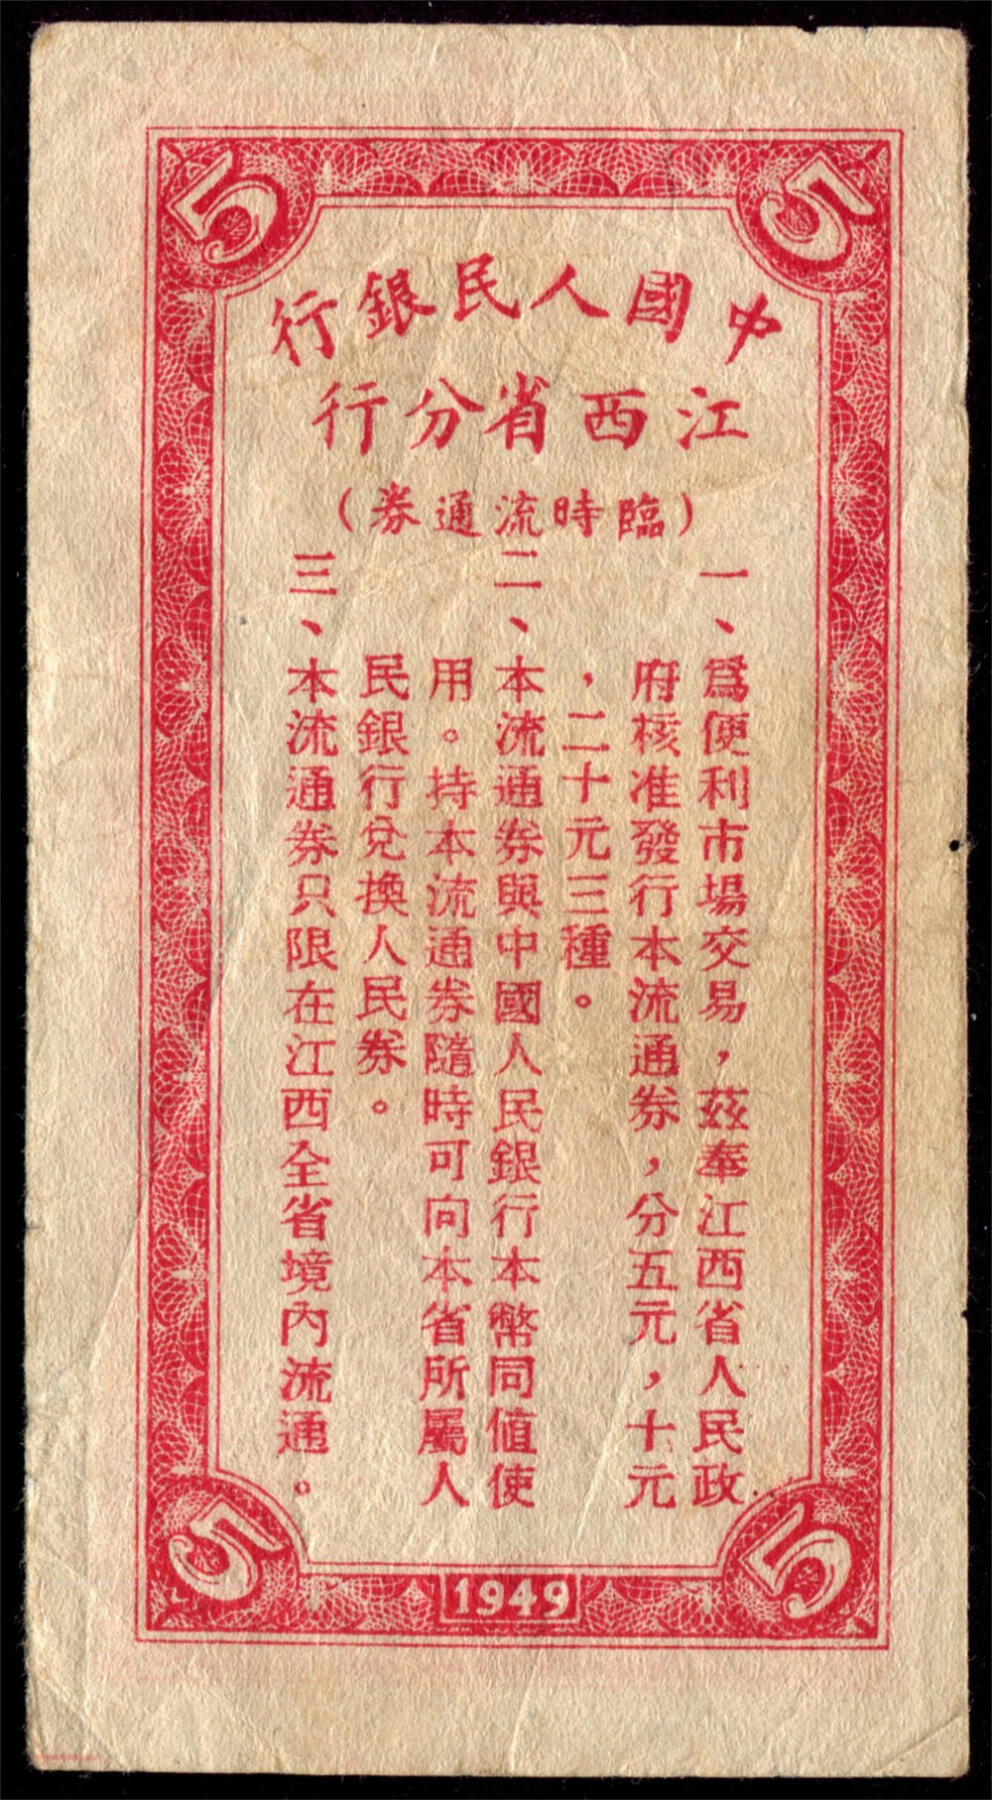 5
5
中國人民銀行
江西省分行
（臨時流通券）
一、爲便利市場交易，茲奉江西省人民政
府核准發行本流通券，分五元，十元
，二十元三種。
二、本流通券與中國人民銀行本幣同值使
用。持本流通券隨時可向本省所屬人
民銀行兌換人民券。
三、本流通券只限在江西全省境內流通。
5
1949
5